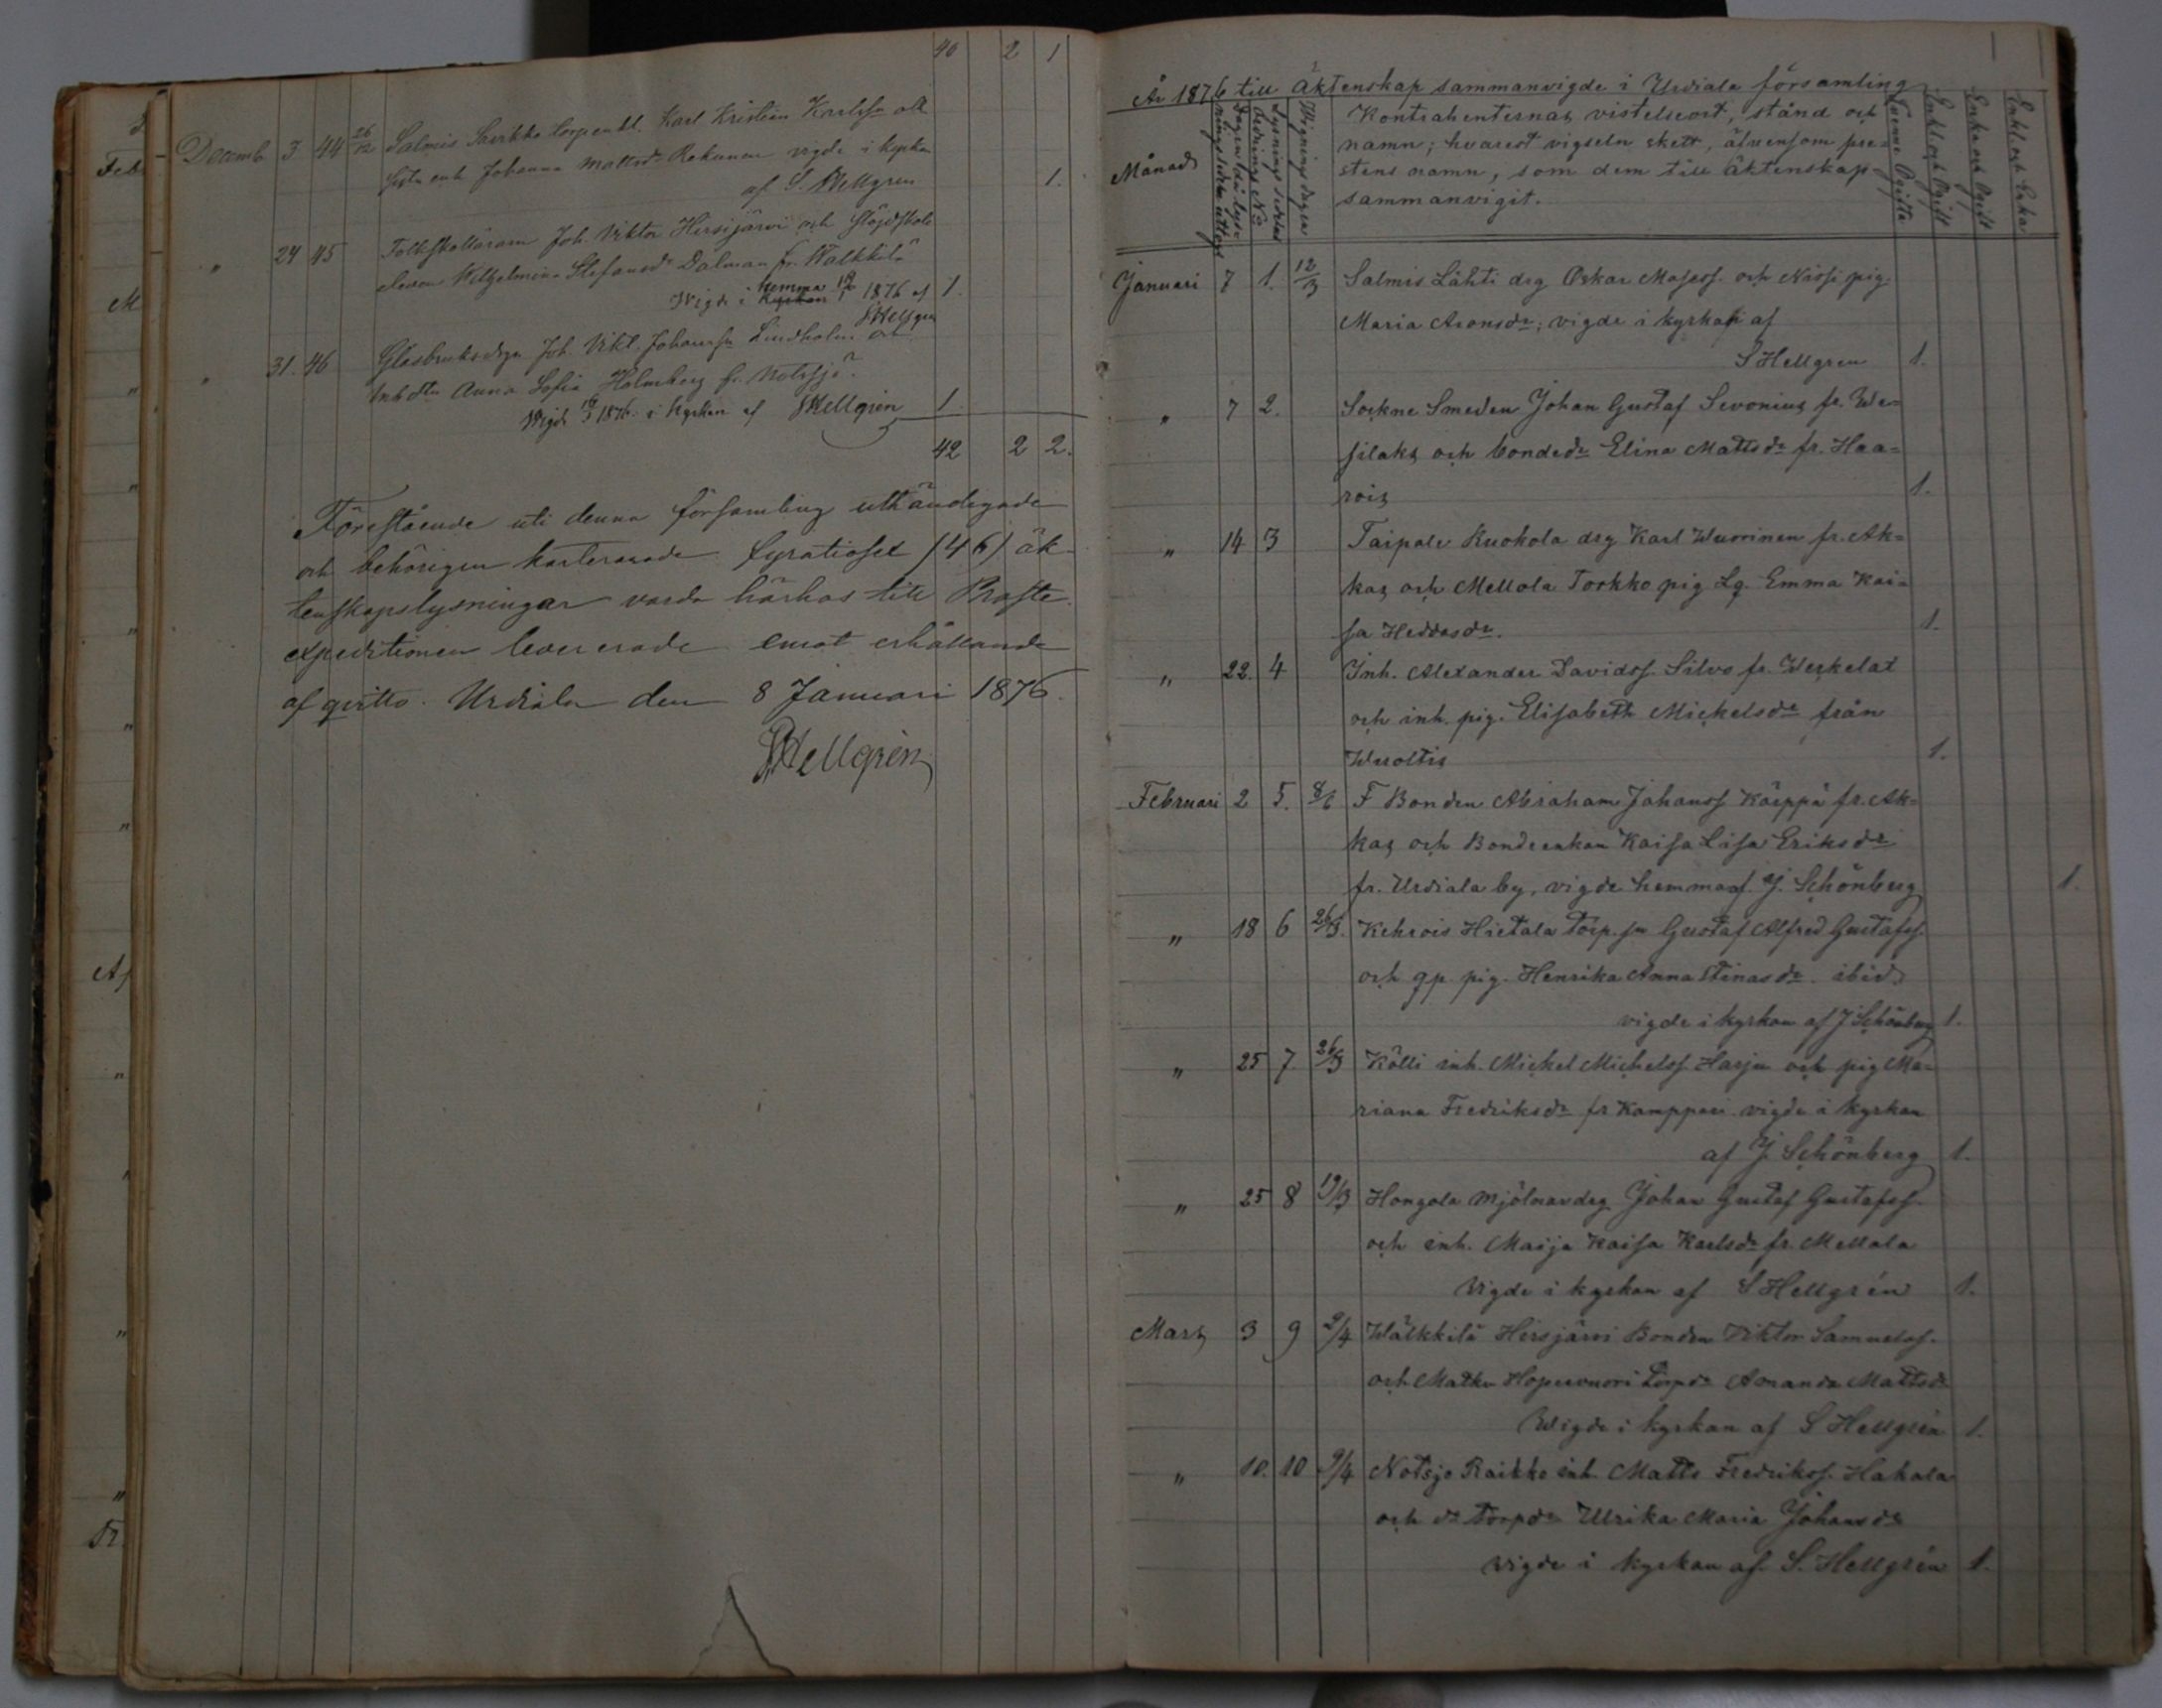 40 2 1
Decemb. 3 44 26/12 Salmis torpenkl. Karl Kristian Karlsson och
enk Johanna Mattsdr vigde i kyrkan
af S. Hellgren 1.
" 24 45 Folkskolläraren Joh. Viktor Hirsijärvi och Slöjdskole
eleven Wilhelmina Stefansdr Dalman fr. Walkkilä
hemma
Wigde i kyrkan 1876 af 1.
SHellgren
" 31. 46 Glasbruksdrgn Joh. Vikt. Johansson Lindholm och
Anna Sofia Holmberg fr. Notsjö.
Wigde 1876 i kyrkan af SHellgren 1
42 2 2.
Förestående uti denna församling uthändigade
och behörigen karterade fyratiosex (46) äk-
tenskapslysningar varda härhos till Prosts
expeditionen levererade emot erhållande
af qvitto. Urdiala den 8 Januari 1876.
SHellgren
År 1876 till äktenskap sammanvigde i Urdiala församling
Månad
Dagen då lysningssedeln uttogs
Lysnings sedelns Ordnings No
Wigningsdagen
Kontrahenternas vistelseort, stånd och
namn; hvarest vigseln skett, äfvensom pre-
stens namn, som dem till äktenskap
sammanvigit.
Tvenne Ogifta
Enkl. och Ogift
Enka och Ogift
Enkl. och Enka
Januari 7 1. 12/3 Salmis Lähti drg Oskar Mosess. och Nässi pig.
Maria Aronsdr; vigde i kyrkan af
S Hellgren 1.
" 7 2. Sockne Smeden Johan Gustaf Sevonius fr. We-
silaks och bondedr Elina Mattsdr fr. Haa-
rois 1.
" 14 3 Taipale Kuokola drg Karl Wuorinen fr. Ak-
kas och Mellola Torkko pig Lg. Emma Kai-
sa Heddasdr. 1.
" 22. 4 Inh. Alexander Davidss. Silvo fr. Weskelat
och inh. pig. Elisabeth Mickelsdr från
Wuoltis 1.
Februari 2 5. 8/6 F Bonden Abraham Johanss Käeppä fr. Ak-
kas och Bondeenkan Kaisa Lisa Eriksdr
fr. Urdiala by, vigde hemma af J. Schönberg 1.
" 18 6 26/3. Kehrois Hietala torp.sn Gustaf Alfred Gustafss.
och gp. pig. Henrika Anna Stinasdr ibid.
vigde i kyrkan af J Schönberg 1.
" 25 7. 26/3 Kölli inh. Mickel Michelss. Harju och pig Ma-
riana Fredriksdr fr Kamppari vigde i kyrkan
af J. Schönberg 1.
" 25 8 19/3 Hongola mjölnardrg. Johan Gustaf Gustafss.
och inh. Maija Kaisa Karlsdr fr. Mellola
Vigde i kyrkan af S Hellgrén 1.
Mars 3 9 2/4 Walkkilä Hirsjärvi Bonden Viktor Samuelss.
och Matku Hopeavuori torpdr Amanda Mattsdr
Wigde i kyrkan af S Hellgrén 1.
" 10. 10 9/4 Notsjo Raikko inh. Matts Fredrikss. Hakala
och dr torpdr Ulrika Maria Johansdr
vigde i kyrkan af S. Hellgrén 1.